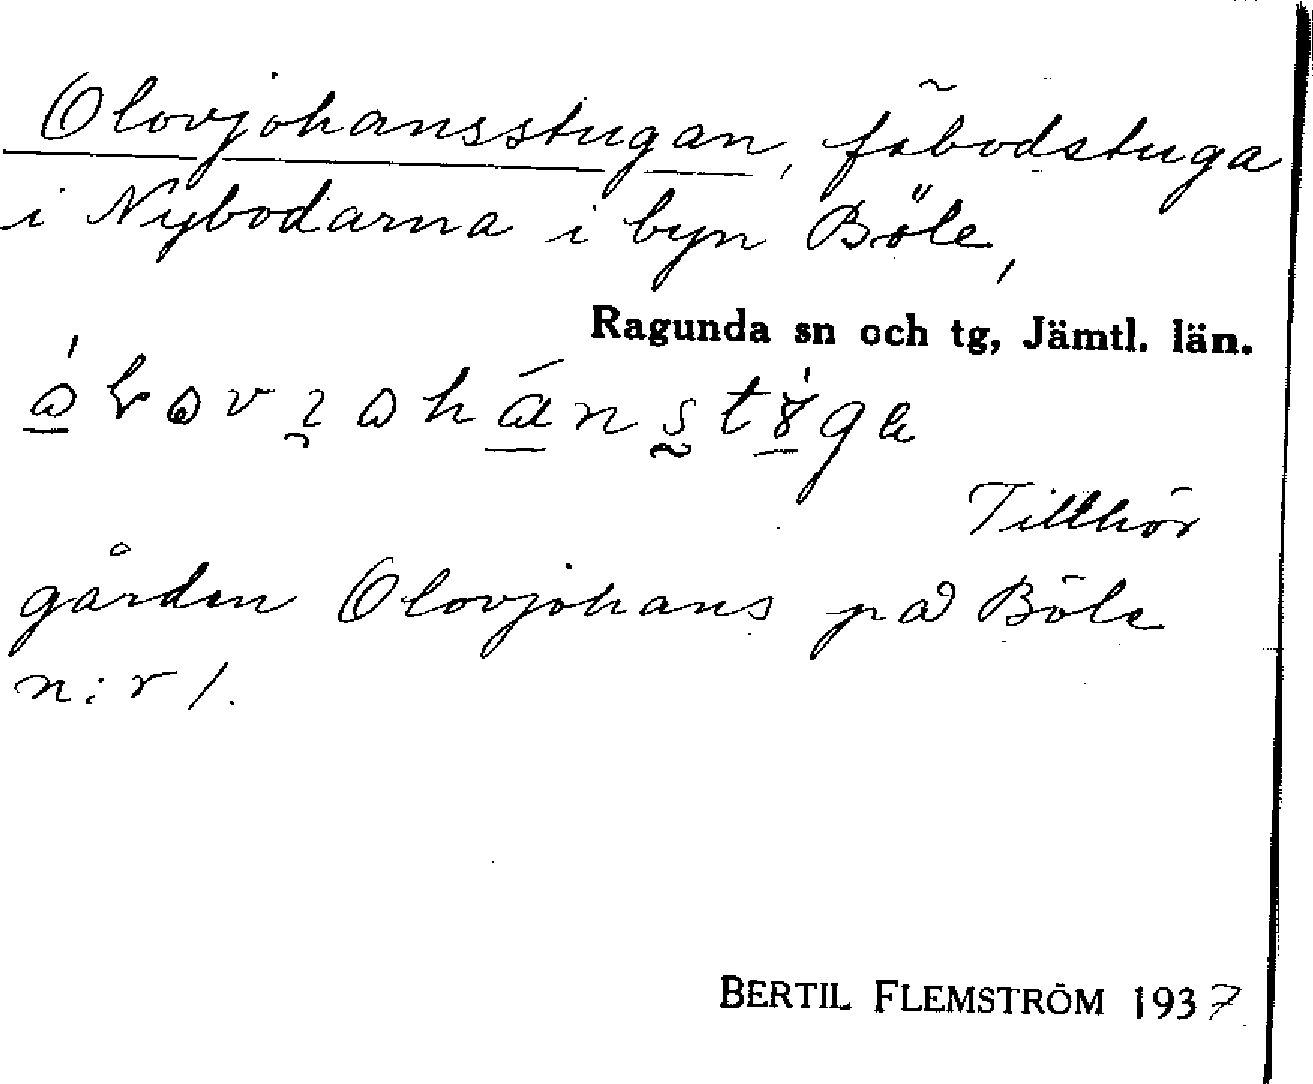 Olovjohansstugan, fäbodstuga
i Nybodarna i byn Böle,
Ragunda sn och tg, Jämtl. län.
Tillhör
gården Olovjohans på Böle
n:r 1.
BERTIL FLEMSTRÖM 1937